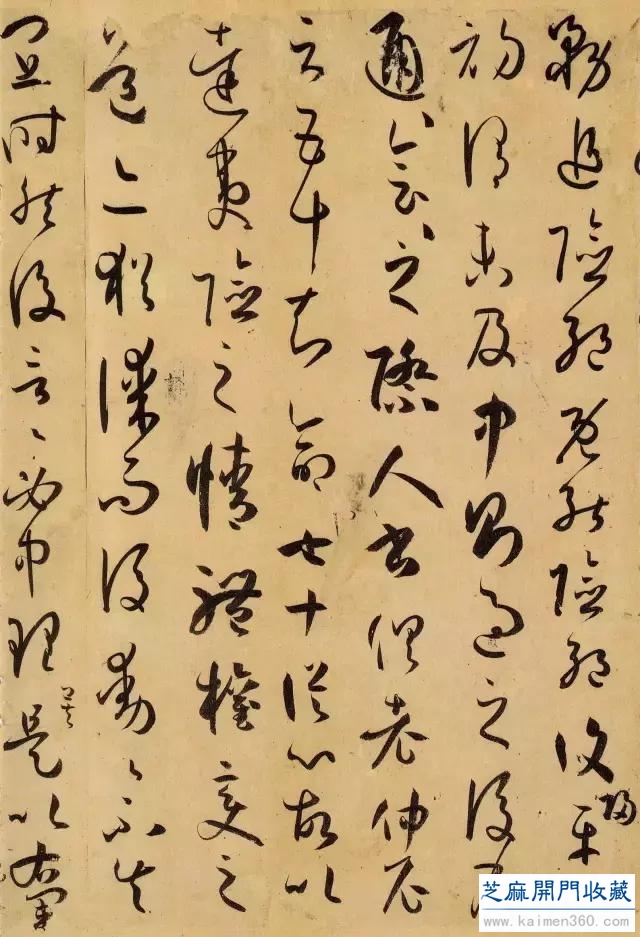 務追險絕既能險絕復歸平
初謂未及中則過之後乃
通〻會〻之際人書俱老仲尼
云五十知命七十從心故以
達夷險之情體權變之
道亦猶謀而後動〻不失
宜時然後言〻必中理矣是以右軍
芝麻開門收藏
www.kaimen360.com